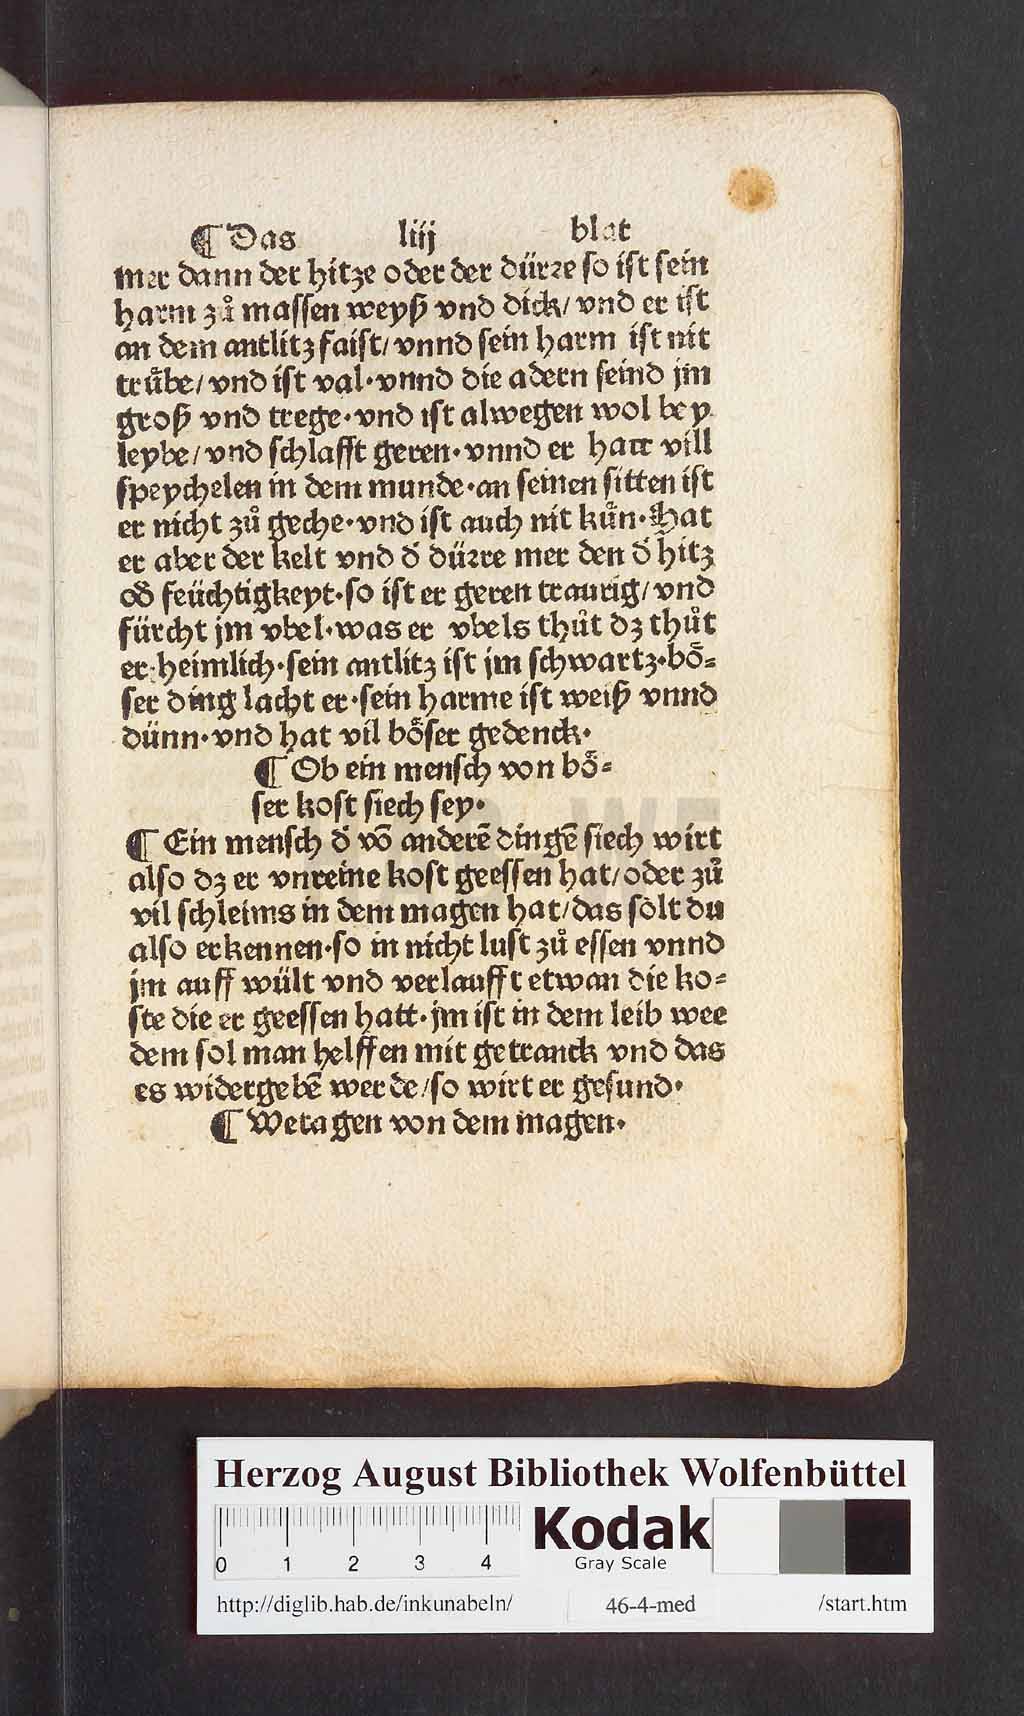 ¶ Das liij blat
mer dann der hitze oder der dürꝛe so ist sein
harm zů massen weyß vnd dick/ vnd er ist
an dem antlitz faist/ vnnd sein harm ist nit
trůbe/ vnd ist val·vnnd die adern seind jm
groß vnd trege·vnd ist alwegen wol bey
leybe/ vnd schlafft geren·vnnd er hatt vill
speychelen in dem munde·an seinen sitten ist
er nicht zů geche·vnd ist auch nit kůn·Hat
er aber der kelt vnd d̕ dürꝛe mer den d̕ hitz
od̕ feüchtigkeyt·so ist er geren traurig/ vnd
fürcht jm vbel·was er vbels thůt dz thůt
er heimlich·sein antlitz ist jm schwartz·bo̊⸗
ser ding lacht er·sein harme ist weiß vnnd
dünn·vnd hat vil bo̊ser gedenck·
¶ Ob ein mensch von bo̊⸗
ser kost siech sey·
¶ Ein mensch d̕ võ anderẽ dingẽ siech wirt
also dz er vnreine kost geessen hat/oder zů
vil schleims in dem magen hat/das solt du
also erkennen·so in nicht lust zů essen vnnd
jm auff wült vnd verlaufft etwan die ko⸗
ste die er geessen hatt·jm ist in dem leib wee
dem sol man helffen mit getranck vnd das
es widergebẽ werde/so wirt er gesund·
¶ Wetagen von dem magen·
Herzog August Bibliothek Wolfenbüttel
0 1 2 3 4
Kodak
Gray Scale
http://diglib.hab.de/inkunabeln/ 46-4-med /start.htm